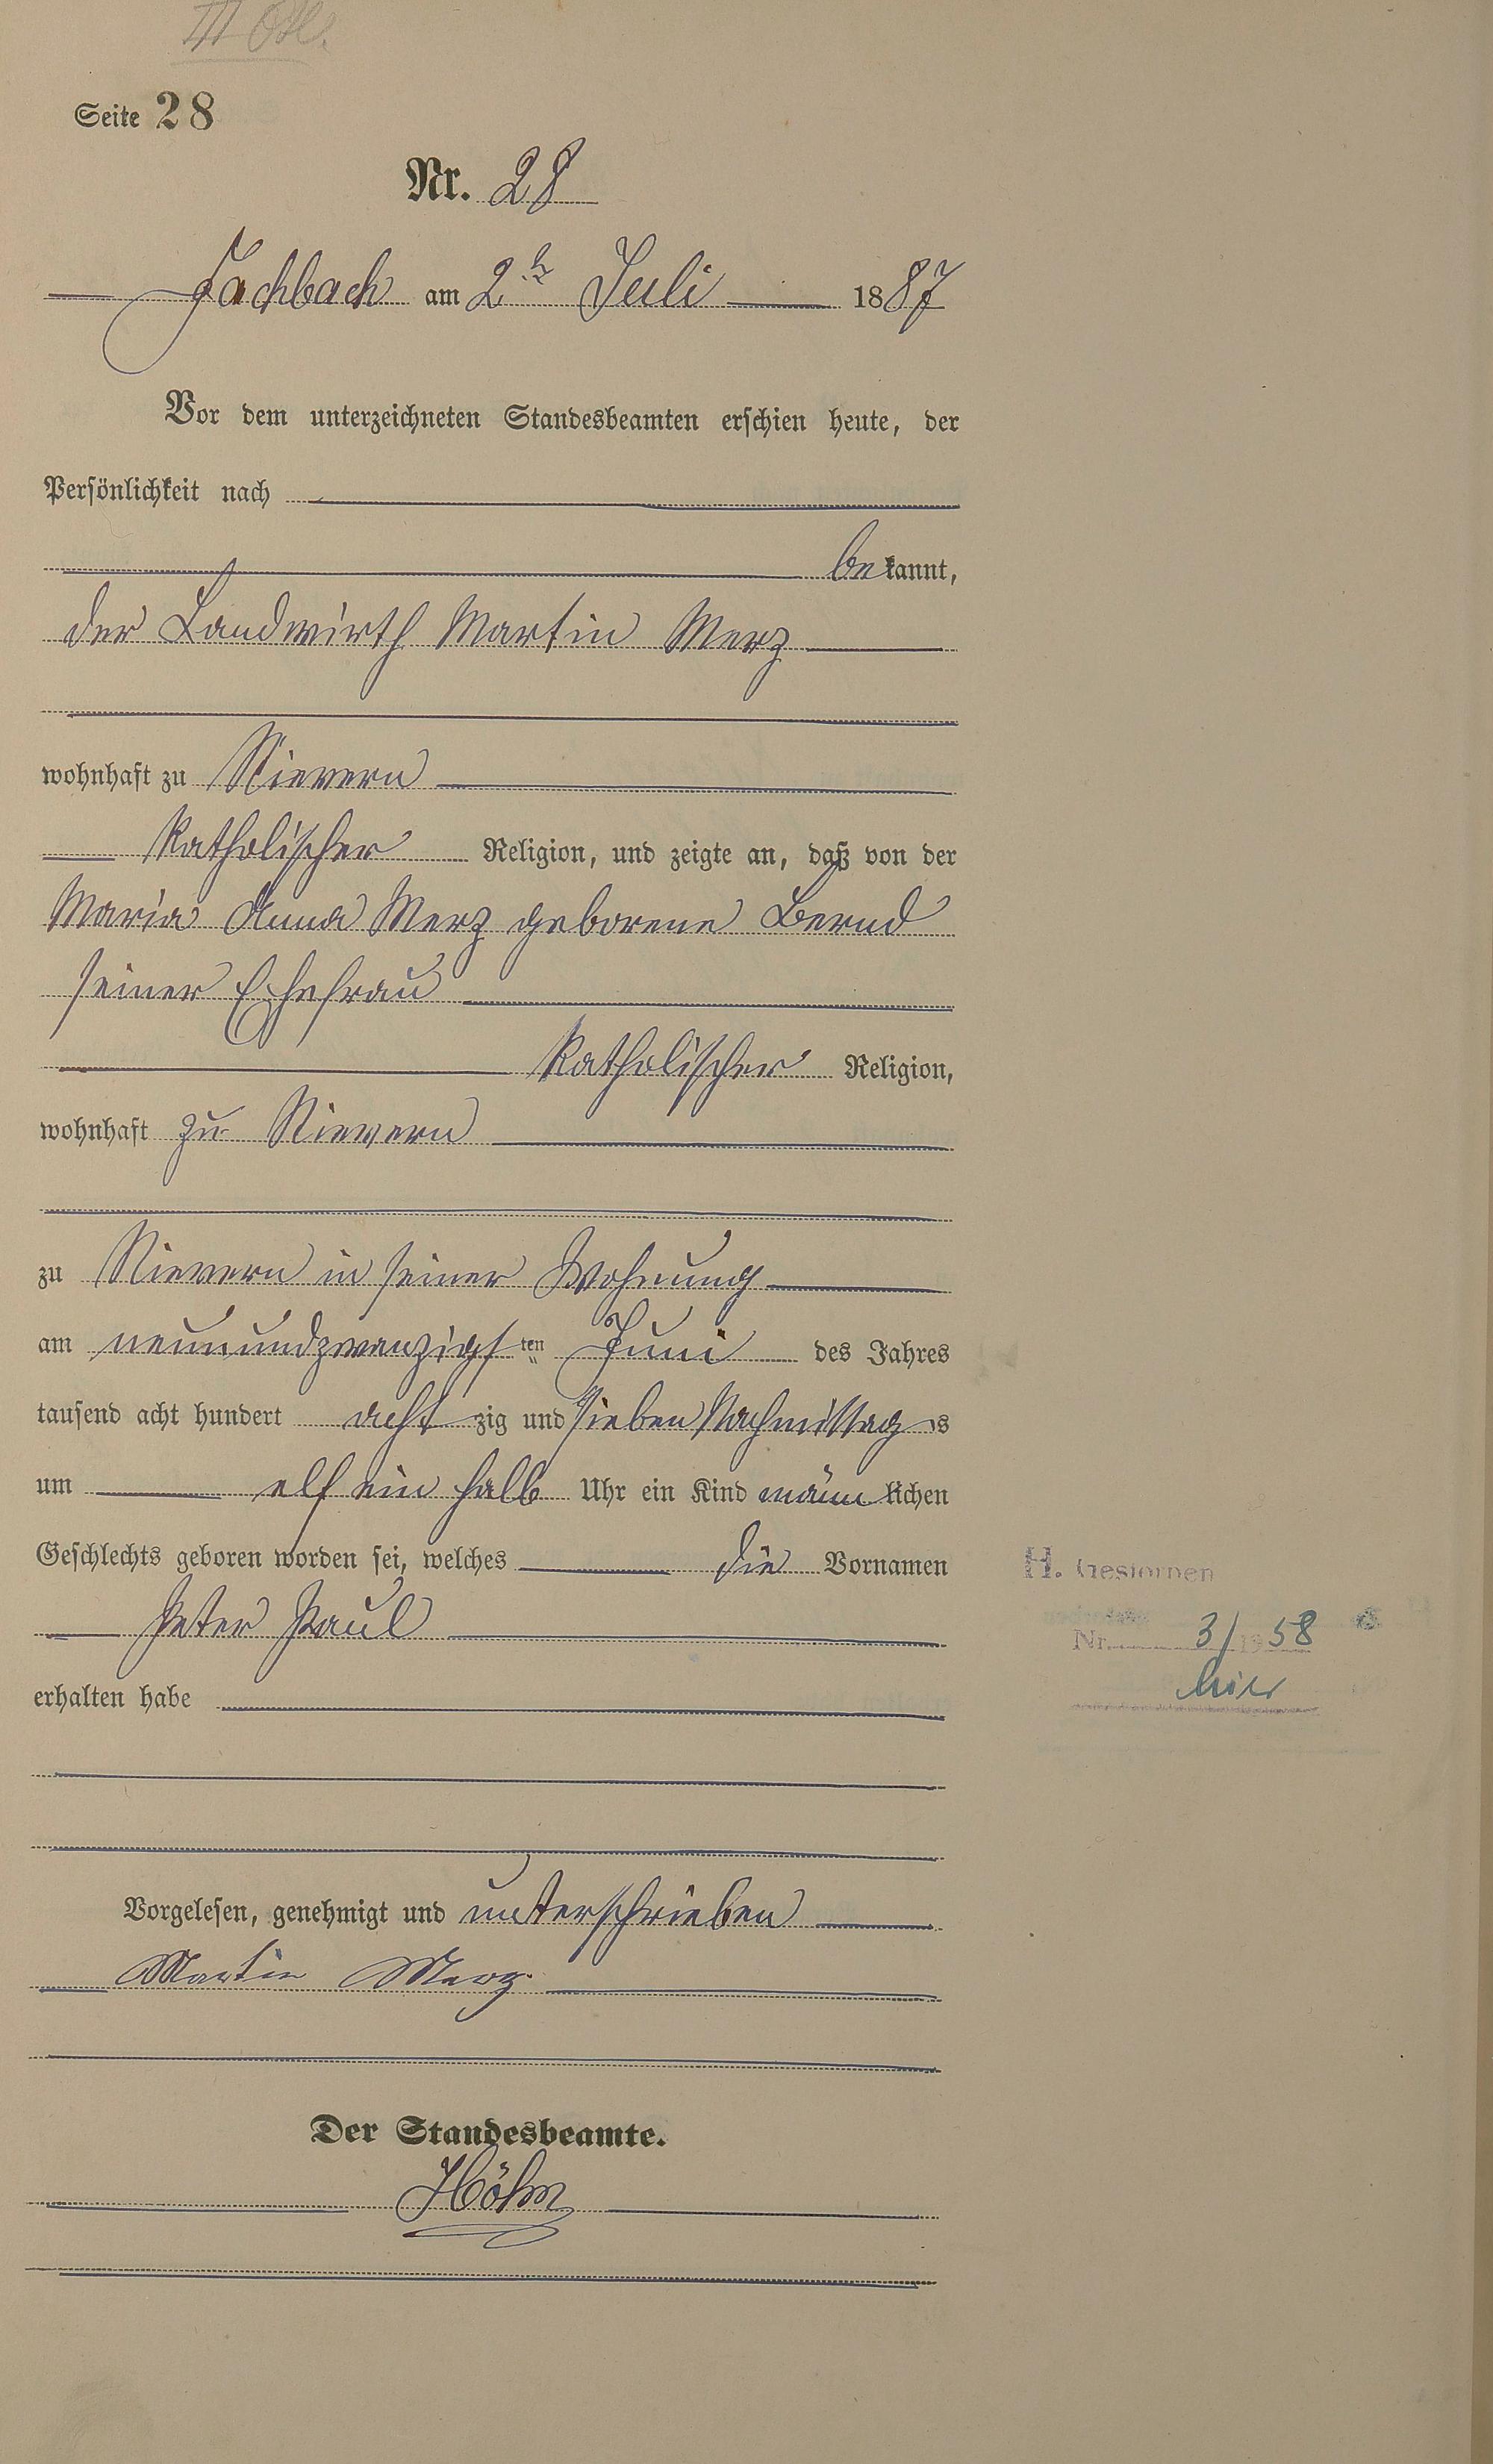 Seite 28
Nr. 28
Fachbach am 2ten Juli 1887
Vor dem unterzeichneten Standesbeamten erschien heute, der
Persönlichkeit nach
bekannt,
der Landwirth Martin Merz
wohnhaft zu Nievern
katholischer Religion, und zeigte an, daß von der
Maria Anna Merz geborene Bernd
seiner Ehefrau
katholischer Religion,
wohnhaft zu Nievern
zu Nievern in seiner Wohnung
am neunundzwanzigsten Juni des Jahres
tausend acht hundert achtzig und sieben Nachmittags
um elf ein halb Uhr ein Kind männlichen
Geschlechts geboren worden sei, welches die Vornamen
Peter Paul
erhalten habe
Vorgelesen, genehmigt und unterschrieben
Martin Merz
Der Standesbeamte.
Höhn
H. Gestorben
Nr. 3/1958
hier